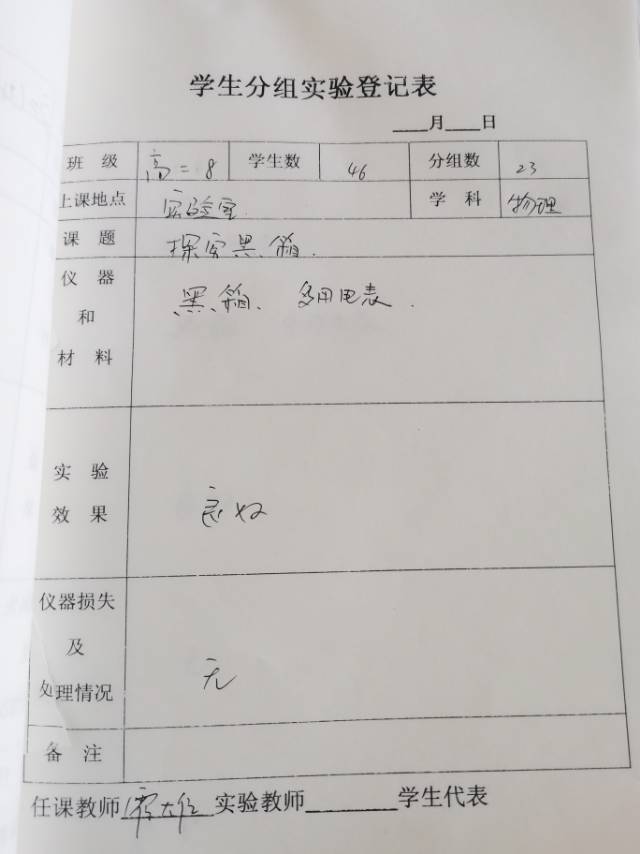 学生分组实验登记表
____月____日
班 级 高二8 学生数 46 分组数 23
上课地点 实验室 学 科 物理
课 题 探究黑箱.
仪 器 黑箱、多用电表.
和
材 料
实 验
效 果 良好
仪器损失
及
处理情况 无
备 注
任课教师 实验教师________学生代表